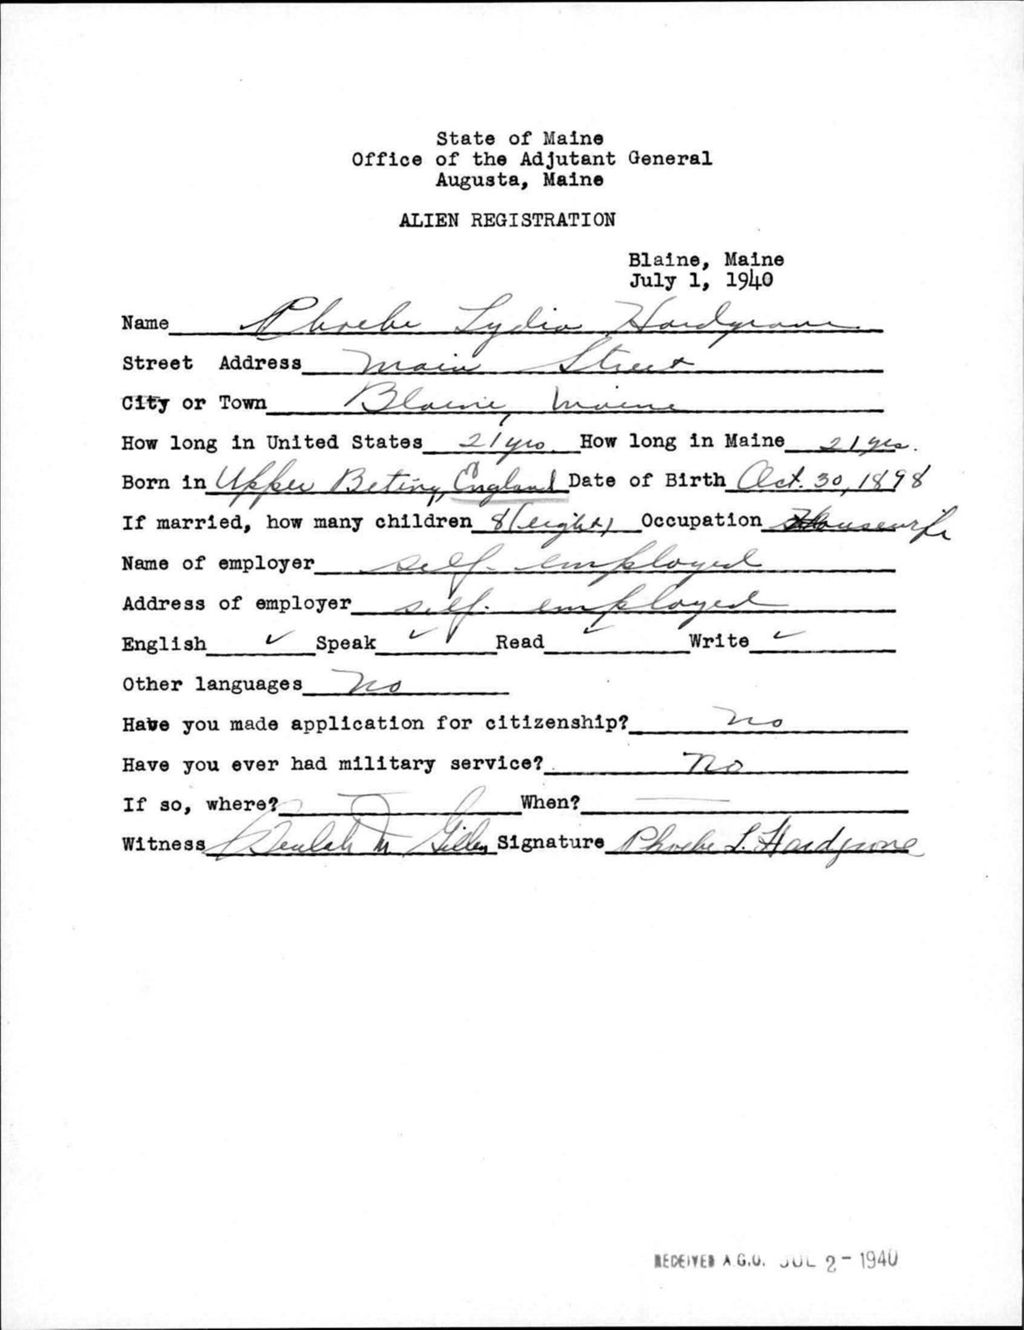 State of Maine
Office of the Adjutant General
Augusta, Maine
ALIEN REGISTRATION
Blaine, Maine
July 1, 1940
Name Phoebe Lydia Hardgrove
Street Address Main Street
City or Town Blaine, Maine
How long in United States 21 yrs. How long in Maine 21 yrs.
Born in Upper Beting, England Date of Birth Oct. 30, 1898
If married, how many children 8 (eight) Occupation Housewife
Name of employer self-employed
Address of employer self-employed
English ✓ Speak ✓ Read ✓ Write ✓
Other languages No
Have you made application for citizenship? No
Have you ever had military service? No
If so, where? — When? —
Witness Beulah M Gillen Signature Phoebe L. Hardgrove
RECEIVED A.G.O. JUL 2 - 1940